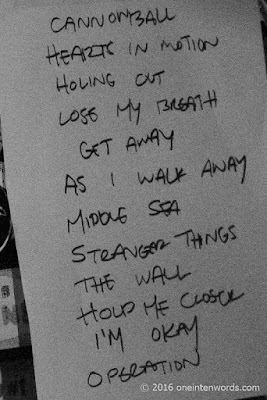 CANNONBALL
HEARTS IN MOTION
HOLING OUT
LOSE MY BREATH
GET AWAY
AS I WALK AWAY
MIDDLE SEA
STRANGER THINGS
THE WALL
HOLD ME CLOSER
I'M OKAY
OPERATION
© 2016 oneintenwords.com